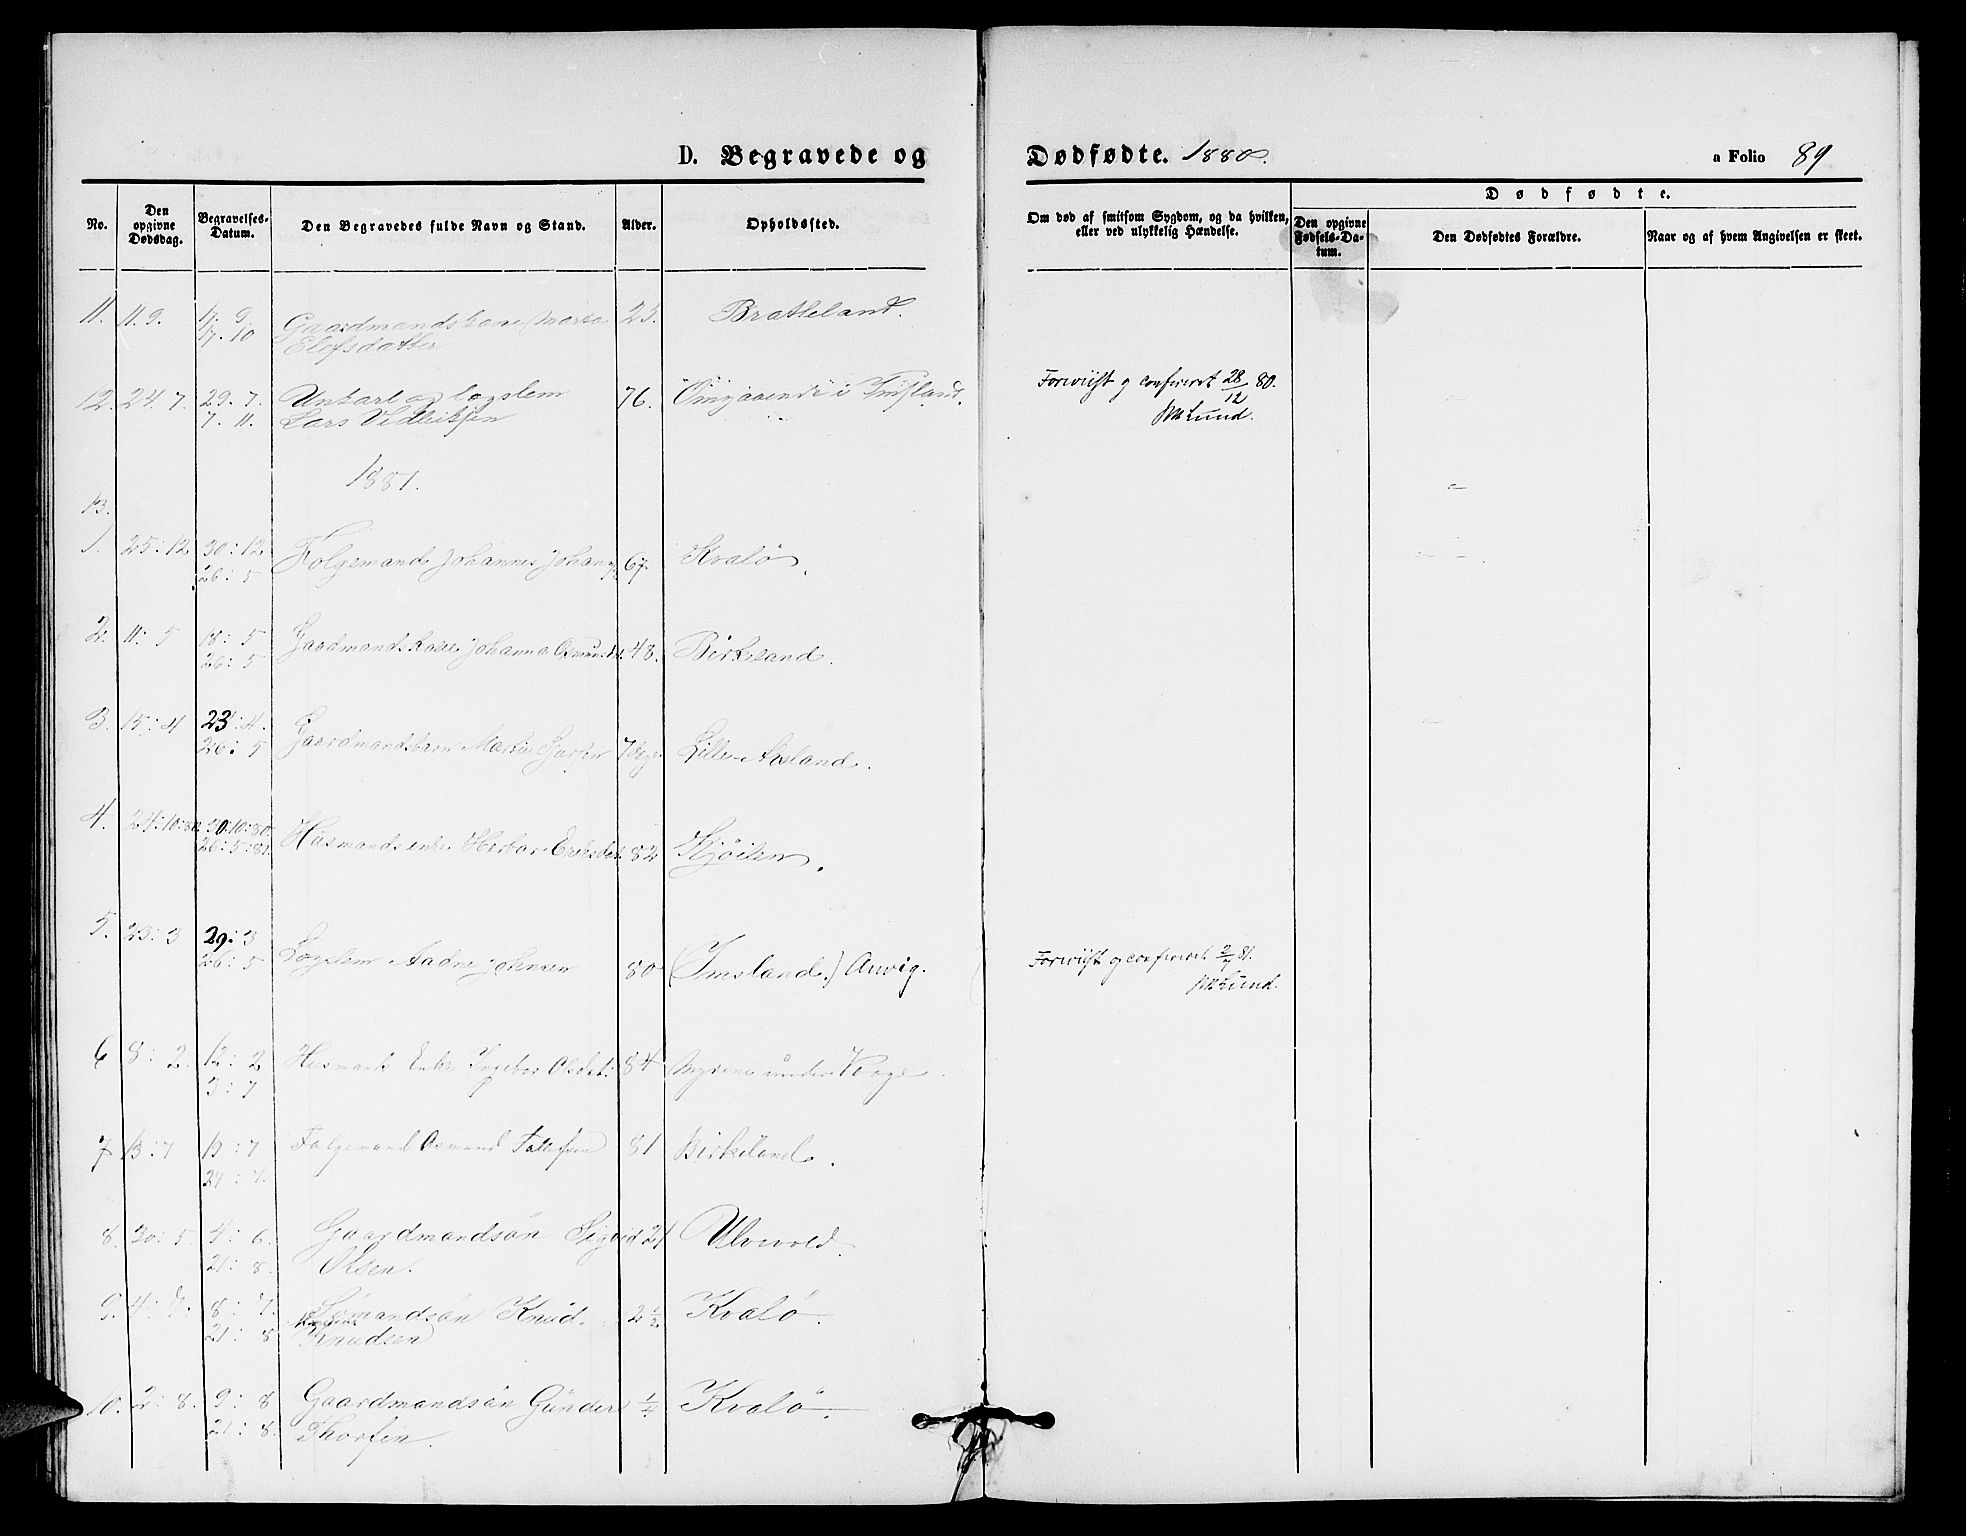 D. Begravede og Dødfødte. 1880.
a Folio 89
No.
Den opgivne Dødsdag.
Begravelses-Datum.
Den Begravedes fulde Navn og Stand.
Alder.
Opholdssted.
Om død af smitsom Sygdom, og da hvilken, eller ved ulykkelig Hændelse.
Dødfødte.
Den opgivne Fødsels-Datum.
Den Dødfødtes Forældre.
Naar og af hvem Angivelsen er skeet.
11. 11. 9. 17. 9. Gaardmandskone Marta 25. Bratteland.
7. 10 Elefsdatter
12. 24. 7. 29. 7. Unkarl og lægslem 76. Omgaaende i Imsland.
7. 11. Lars Vedleiksen
Forevist og confereret 28/12 80.
Lund.
1881.
13.
1. 25: 12 30: 12 Folgemand Johannes Johann 67. Kvalö.
26: 5
2. 11: 5 18: 5 Gaardmandskone Johanna Osmundsd. 48. Birkeland.
26: 5
3. 15: 4 23: 4. Gaardmandsbarn 7 Lille-Aasland.
26: 5
4. 24: 10: 80. 30: 10: 80. Husmandsenke Herbor Eriksdat. 82 Kjöilen.
26: 5: 81.
5. 23: 3 29: 3 Lægslem Aadne Johnsen 80 (Imsland.) Anvig.
26: 5
Forevist og confereret 2/7 81.
Lund.
6 8: 2. 12: 2 Husmands Enke Ingebor Olsdat: 84 Myrene under Vaage.
3: 7
7 13: 7 19: 7 Folgemand Osmund Tollefsen 81 Birkeland.
24: 7.
8. 30: 5 4: 6. Gaardmandsön Sigvid 21 Ulvevold.
21: 8. Olsen.
9. 4: 7. 8: 7. Sömandsön Knud. 2 1/2 Kvalö.
21: 8 Knudsen
10. 2: 8. 9: 8 Gaardmandsön Gunder 1/4 Kvalö.
21: 8. Thorsen.